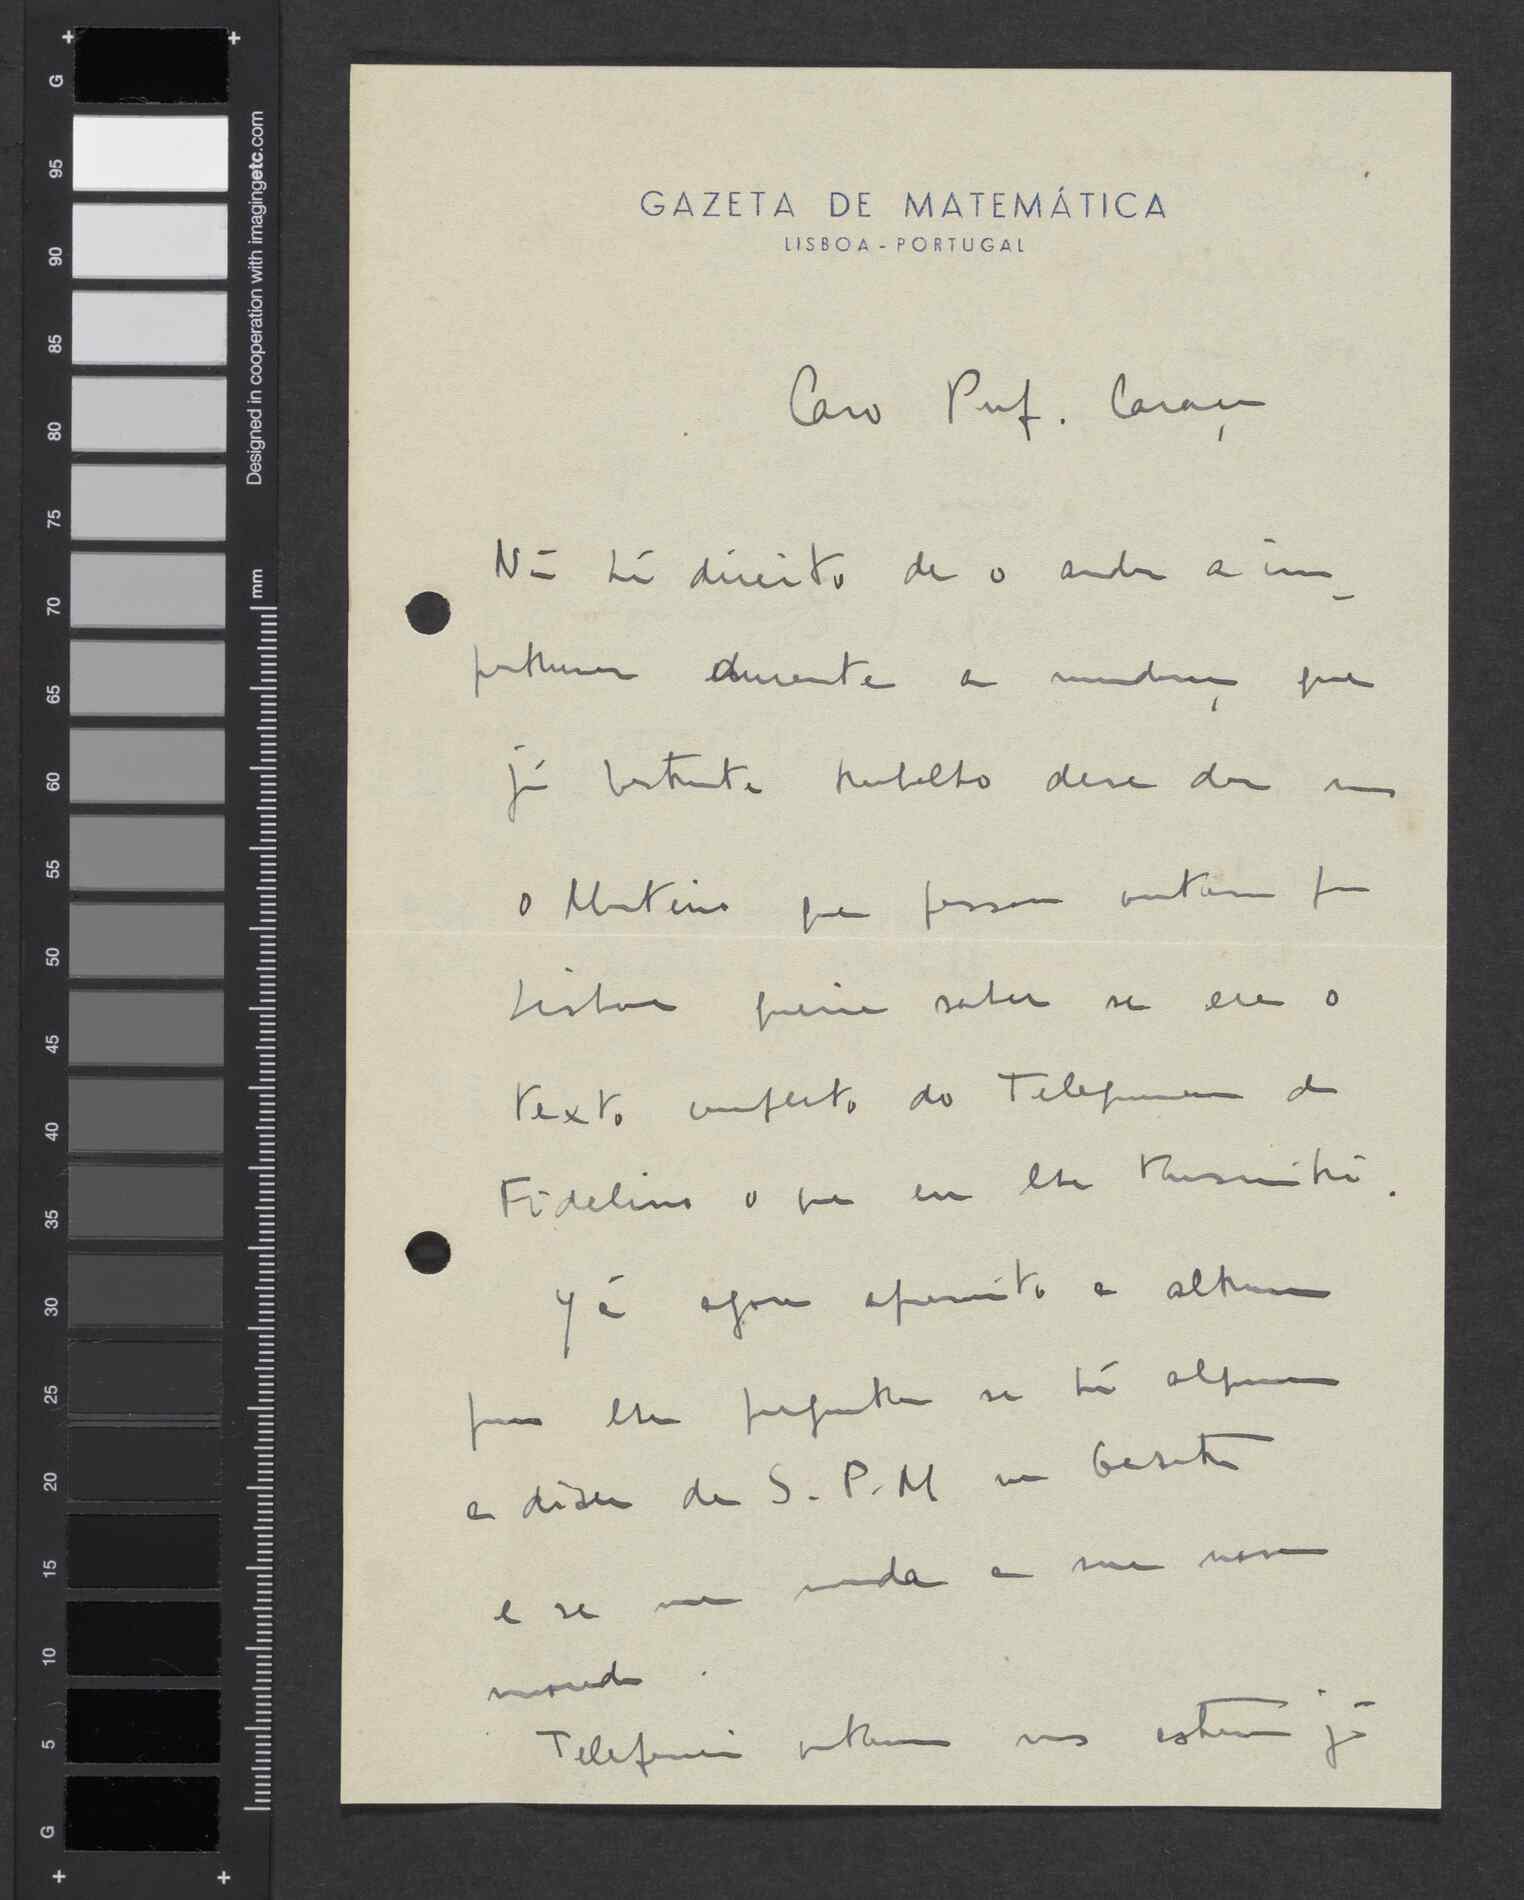 G
95
90
85
80
75
70
65
60
55
50
45
40
35
30
25
20
15
10
5
G
Designed in cooperation with imagingetc.com
mm
GAZETA DE MATEMÁTICA
LISBOA - PORTUGAL
Caro Prof. Caraça
Não há direito de o andar a im-
portunar durante a mudança que
já bastante trabalho deve dar mas
o Monteiro que
queria saber se era o
texto completo do Telegrama do
Fidelino o que eu lhe transmiti.
Já agora aproveito a altura
para lhe perguntar se há alguma
a dizer da S. P. M na Gazeta
e se me manda a sua nova
morada.
Telefonei ontem mas estava já